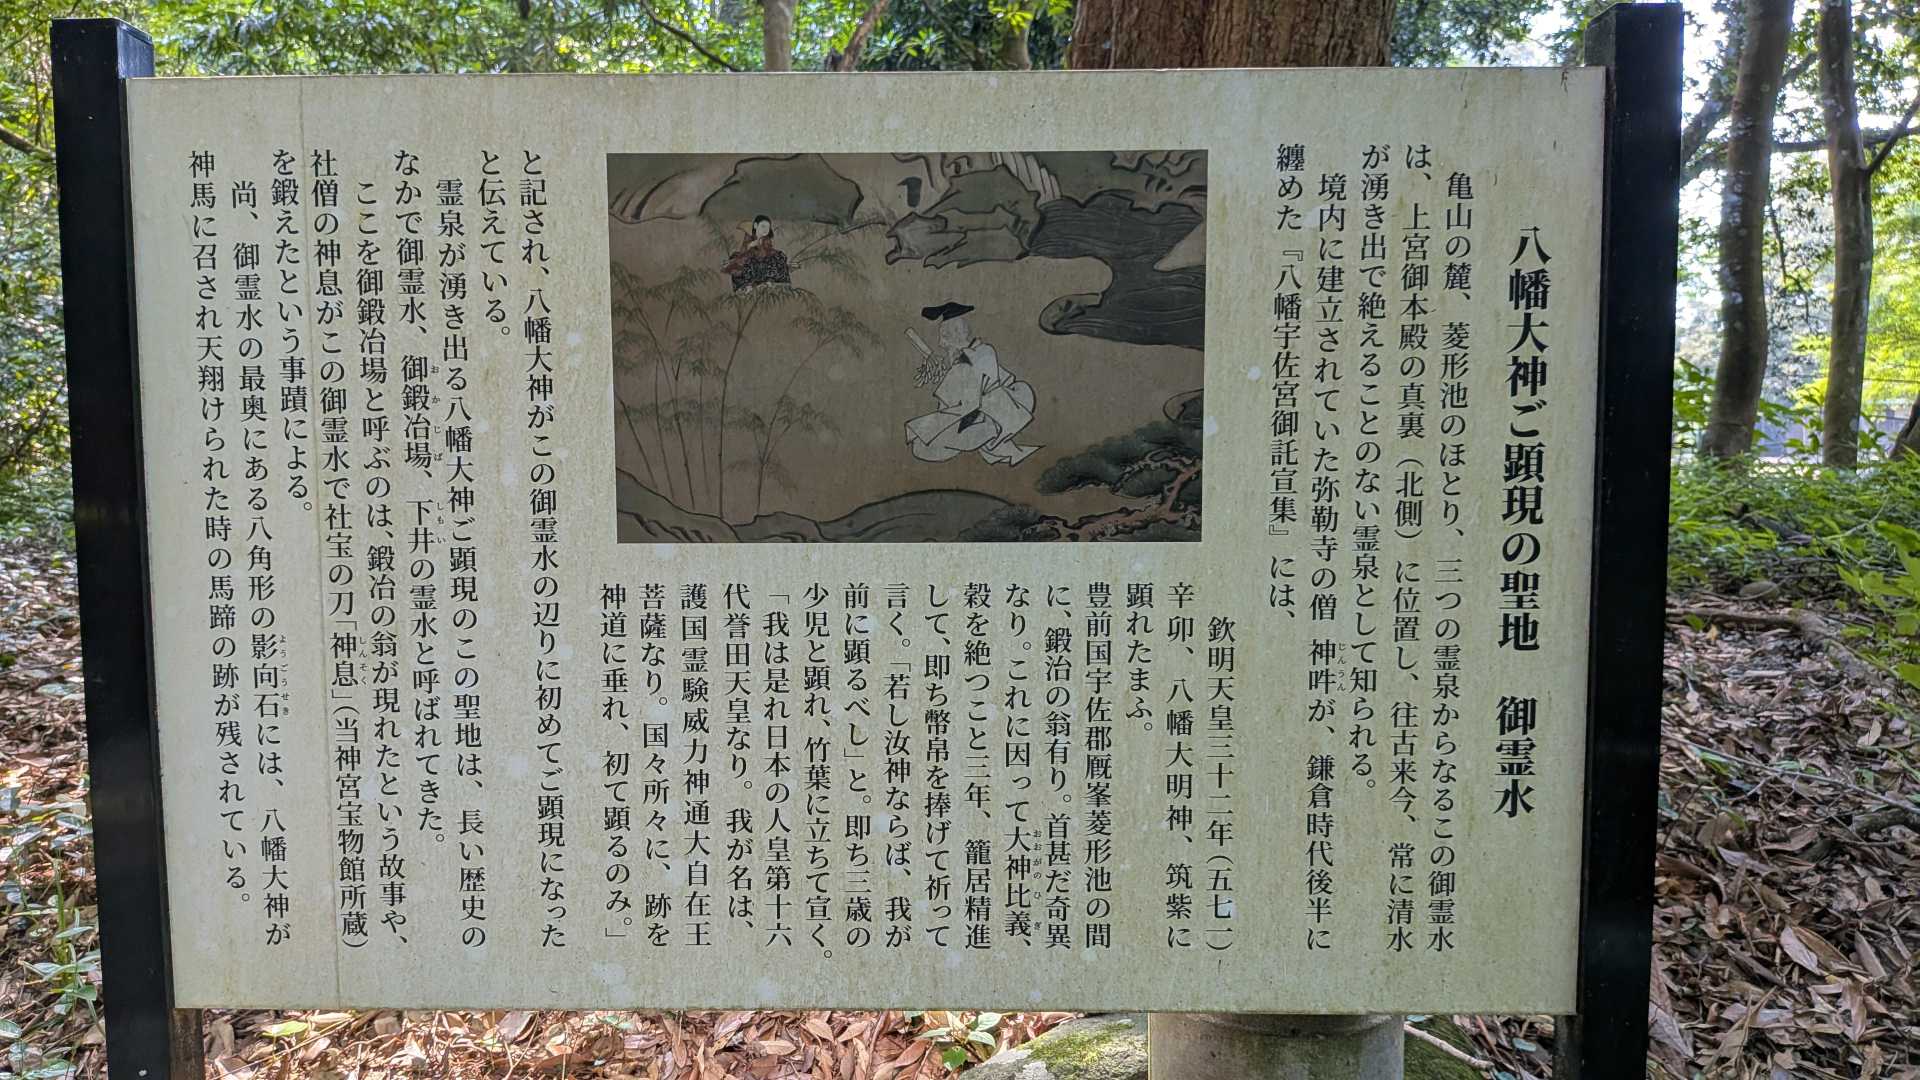 八幡大神ご顕現の聖地　御霊水
亀山の麓、菱形池のほとり、三つの霊泉からなるこの御霊水
は、上宮御本殿の真裏（北側）に位置し、往古来今、常に清水
が湧き出で絶えることのない霊泉として知られる。
境内に建立されていた弥勒寺の僧　神吽が、鎌倉時代後半に
じんうん
纏めた『八幡宇佐宮御託宣集』には、
欽明天皇三十二年（五七一）
辛卯、八幡大明神、筑紫に
顕れたまふ。
豊前国宇佐郡厩峯菱形池の間
に、鍛冶の翁有り。首甚だ奇異
なり。これに因って大神比義、
おおがのひぎ
穀を絶つこと三年、籠居精進
して、即ち幣帛を捧げて祈って
言く。「若し汝神ならば、我が
前に顕るべし」と。即ち三歳の
少児と顕れ、竹葉に立ちて宣く。
「我は是れ日本の人皇第十六
代誉田天皇なり。我が名は、
護国霊験威力神通大自在王
菩薩なり。国々所々に、跡を
神道に垂れ、初て顕るのみ。」
と記され、八幡大神がこの御霊水の辺りに初めてご顕現になった
と伝えている。
霊泉が湧き出る八幡大神ご顕現のこの聖地は、長い歴史の
なかで御霊水、御鍛冶場、下井の霊水と呼ばれてきた。
おかじば
しもい
ここを御鍛冶場と呼ぶのは、鍛冶の翁が現れたという故事や、
社僧の神息がこの御霊水で社宝の刀「神息」（当神宮宝物館所蔵）
しんそく
を鍛えたという事蹟による。
尚、御霊水の最奥にある八角形の影向石には、八幡大神が
ようごうせき
神馬に召され天翔けられた時の馬蹄の跡が残されている。